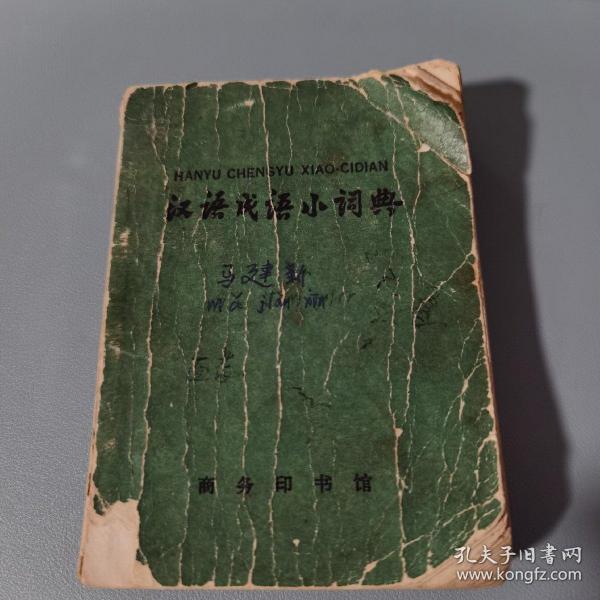 HANYU CHENGYU XIAO-CIDIAN
汉语成语小词典
马建新
商务印书馆
孔夫子旧书网
www.kongfz.com